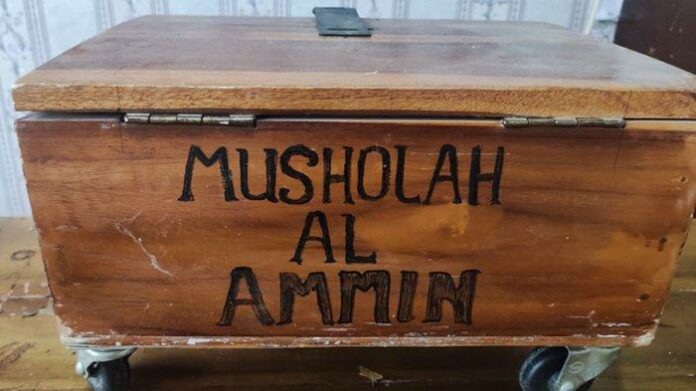 MUSHOLAH
AL
AMMIN